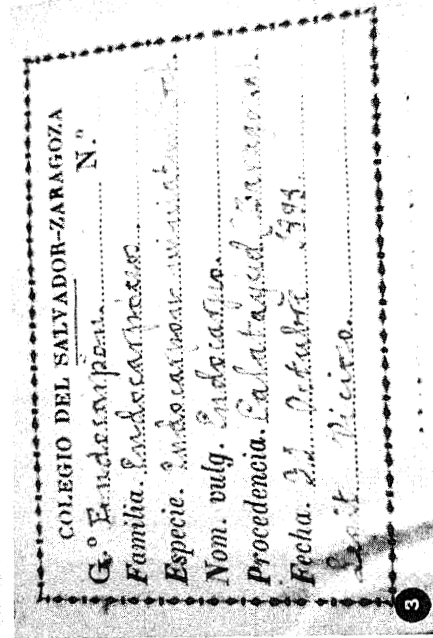 COLEGIO DEL SALVADOR-ZARAGOZA
G.º Endocarpon. N.º
Familia. Endocarpáceas
Especie. Endocarpon miniatum
Nom. vulg. Endocarpo.
Procedencia. Calatayud (Zaragoza).
Fecha. Octubre
Vicioso.
3